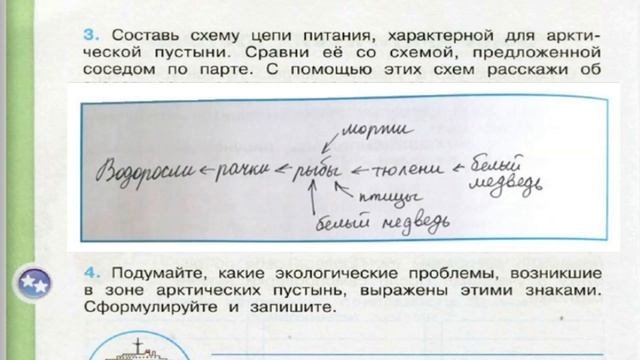 3. Составь схему цепи питания, характерной для аркти-
ческой пустыни. Сравни её со схемой, предложенной
соседом по парте. С помощью этих схем расскажи об
моржи
Водоросли ← рачки ← рыбы ← тюлени ← белый медведь
птицы
белый медведь
4. Подумайте, какие экологические проблемы, возникшие
в зоне арктических пустынь, выражены этими знаками.
Сформулируйте и запишите.